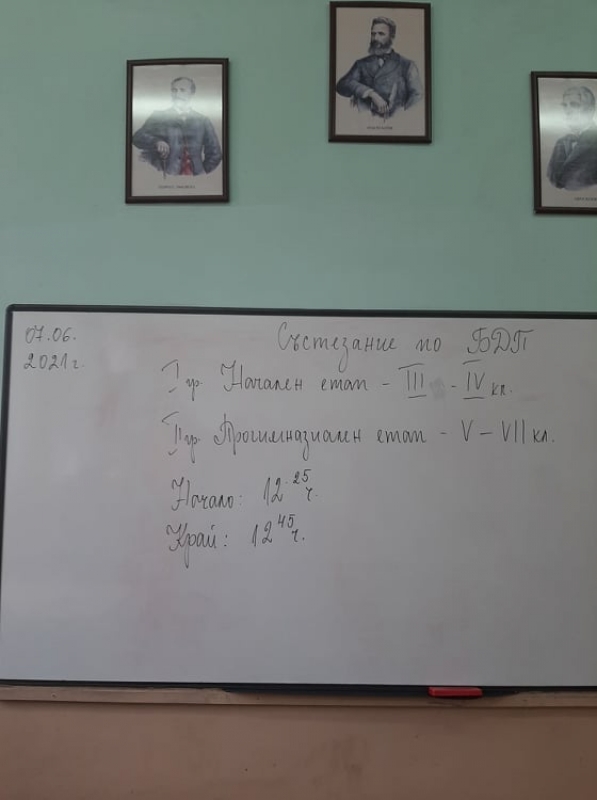 07.06.
2021 г.
Състезание по БДП
I гр. Начален етап - III - IV кл.
II гр. Прогимназиален етап - V - VII кл.
Начало: 12.25 ч.
Край: 12 45 ч.